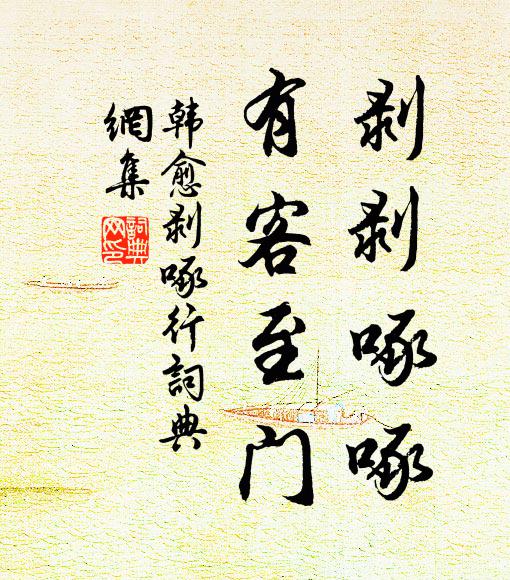 剥剥啄啄
有客至门
韩愈剥啄行词典
網集
词典
网印